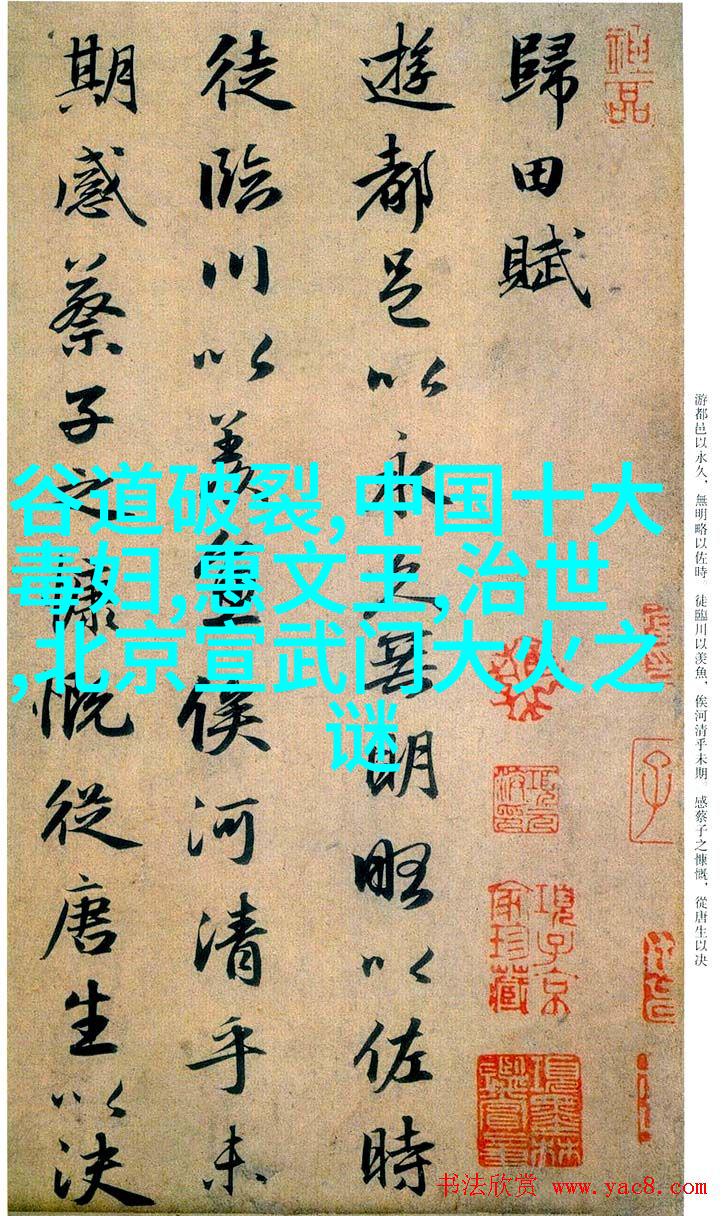 歸田賦
遊都邑以永久無明略以佐時
徒臨川以羨魚俟河清乎未
期感蔡子之慷慨從唐生以決
谷道破裂,中国十大
毒妇,惠文王,治世
,北京宣武门大火之
谜
游都邑以永久，無明略以佐時　徒臨川以羨魚，俟河清乎未期。感蔡子之慷慨，從唐生以决
神品
項子京家珍藏
書法欣赏 www.yac8.com